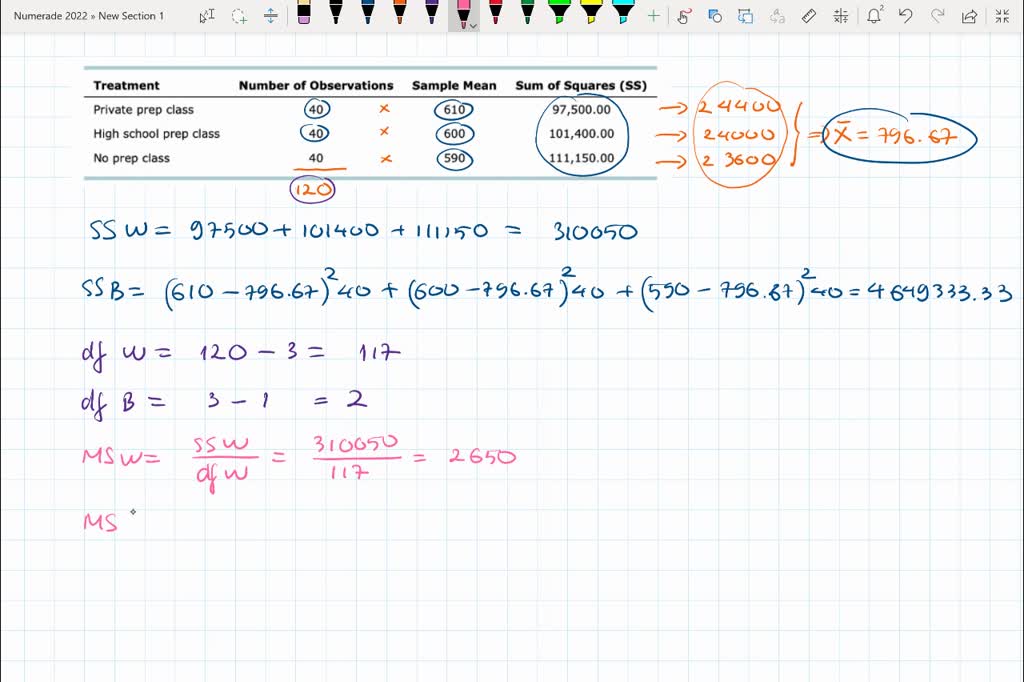 Numerade 2022 » New Section 1
2
Treatment Number of Observations Sample Mean Sum of Squares (SS)
Private prep class 40 × 610 97,500.00 → 24400
High school prep class 40 × 600 101,400.00 → 24000 } => X̄ = 796.67
No prep class 40 × 590 111,150.00 → 23600
120
SSW = 97500 + 101400 + 111150 = 310050
SSB = (610 - 796.67)² 40 + (600 - 796.67)² 40 + (590 - 796.67)² 40 = 4649333.33
df W = 120 - 3 = 117
df B = 3 - 1 = 2
MSW = SSW / dfW = 310050 / 117 = 2650
MS